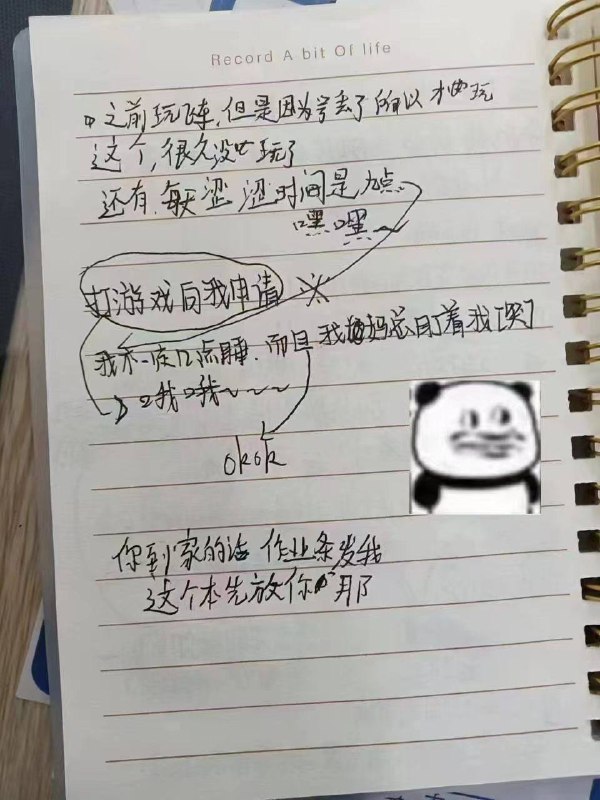 Record A bit Of life
之前玩 但是因为号丢了所以才玩
这个,很久没玩了
还有,每天涩涩时间是九点
嘿嘿~
打游戏向我申请
我不一定几点睡,而且我妈总盯着我[哭]
哦哦~~~~
okok
你到家的话 作业条发我
这个本先放你那